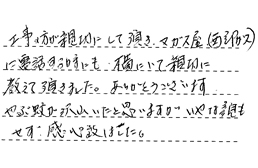 工事の方が親切にして頂き、マガス屋(西部ガス)
に電話する時にも、横にいて親切に
教えて頂きました。ありがとうございます
やぶ蚊が沢山いたと思いますが いやな顔も
せず、感心致しました。